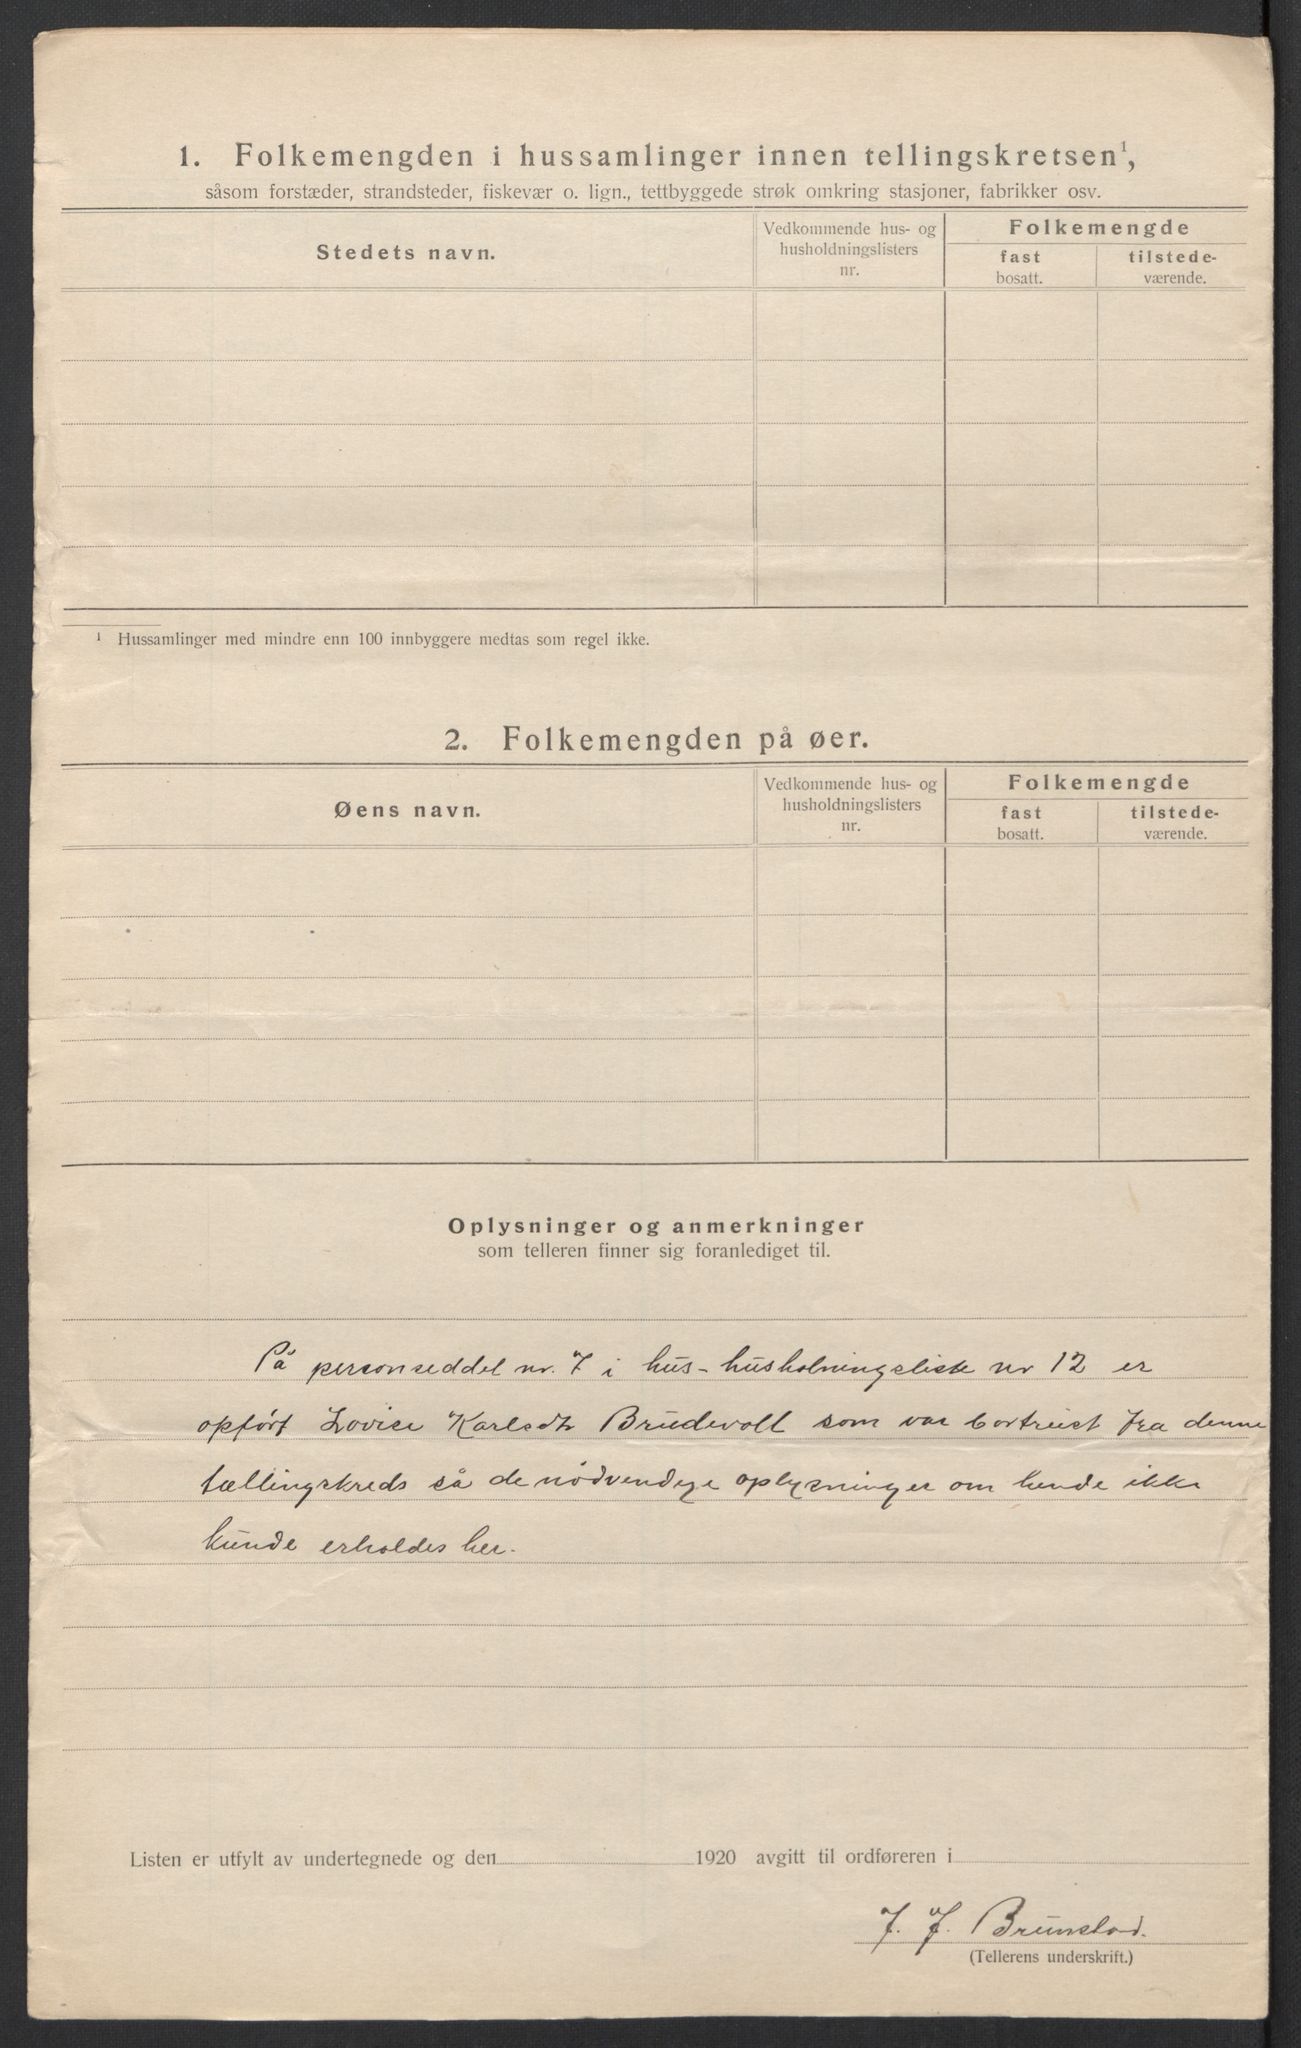 1. Folkemengden i hussamlinger innen tellingskretsen¹,
såsom forstæder, strandsteder, fiskevær o. lign., tettbyggede strøk omkring stasjoner, fabrikker osv.
Stedets navn.
Vedkommende hus- og
husholdningslisters
nr.
Folkemengde
fast
bosatt.
tilstede-
værende.
¹ Hussamlinger med mindre enn 100 innbyggere medtas som regel ikke.
2. Folkemengden på øer.
Øens navn.
Vedkommende hus- og
husholdningslisters
nr.
Folkemengde
fast
bosatt.
tilstede-
værende.
Oplysninger og anmerkninger
som telleren finner sig foranlediget til.
På personseddel nr. 7 i hus-husholningsliste nr 12 er
opført Lovise Karlsdtr Brudevoll som var bortreist fra denne
tællingskreds så de nödvendige oplysninger om hende ikke
kunde erholdes her.
Listen er utfylt av undertegnede og den 1920 avgitt til ordføreren i
J. J. Brunstad.
(Tellerens underskrift.)